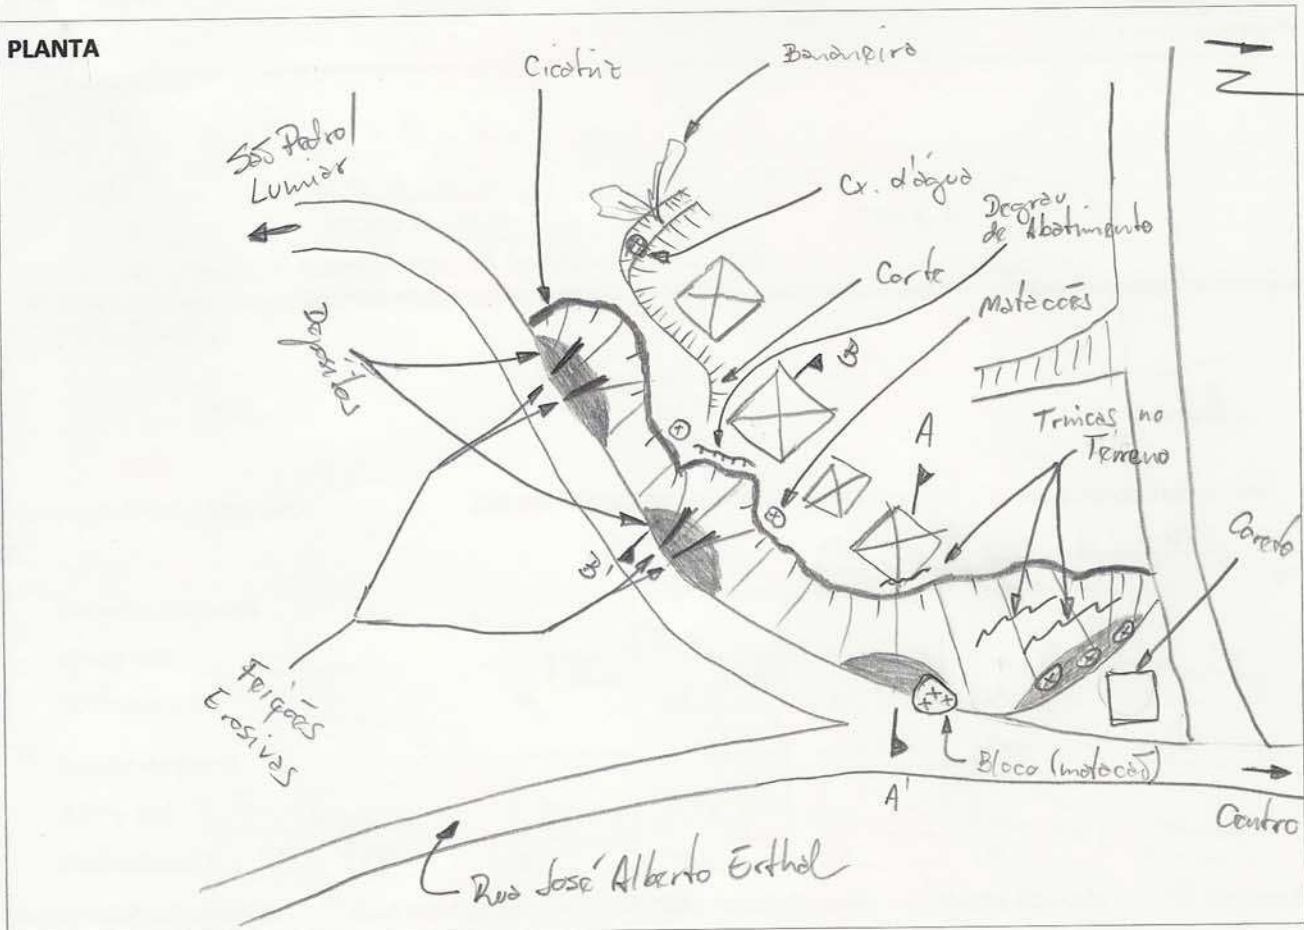 PLANTA
Cicatriz
Bananeira
São Pedro/
Lumiar
Cx. d'água
Degrau
de Abatimento
Corte
Matacões
Depósitos
B
A
Trincas no
Terreno
N
B'
Feições
Erosivas
Bloco (matacão)
A'
Centro
Rua José Alberto Erthal